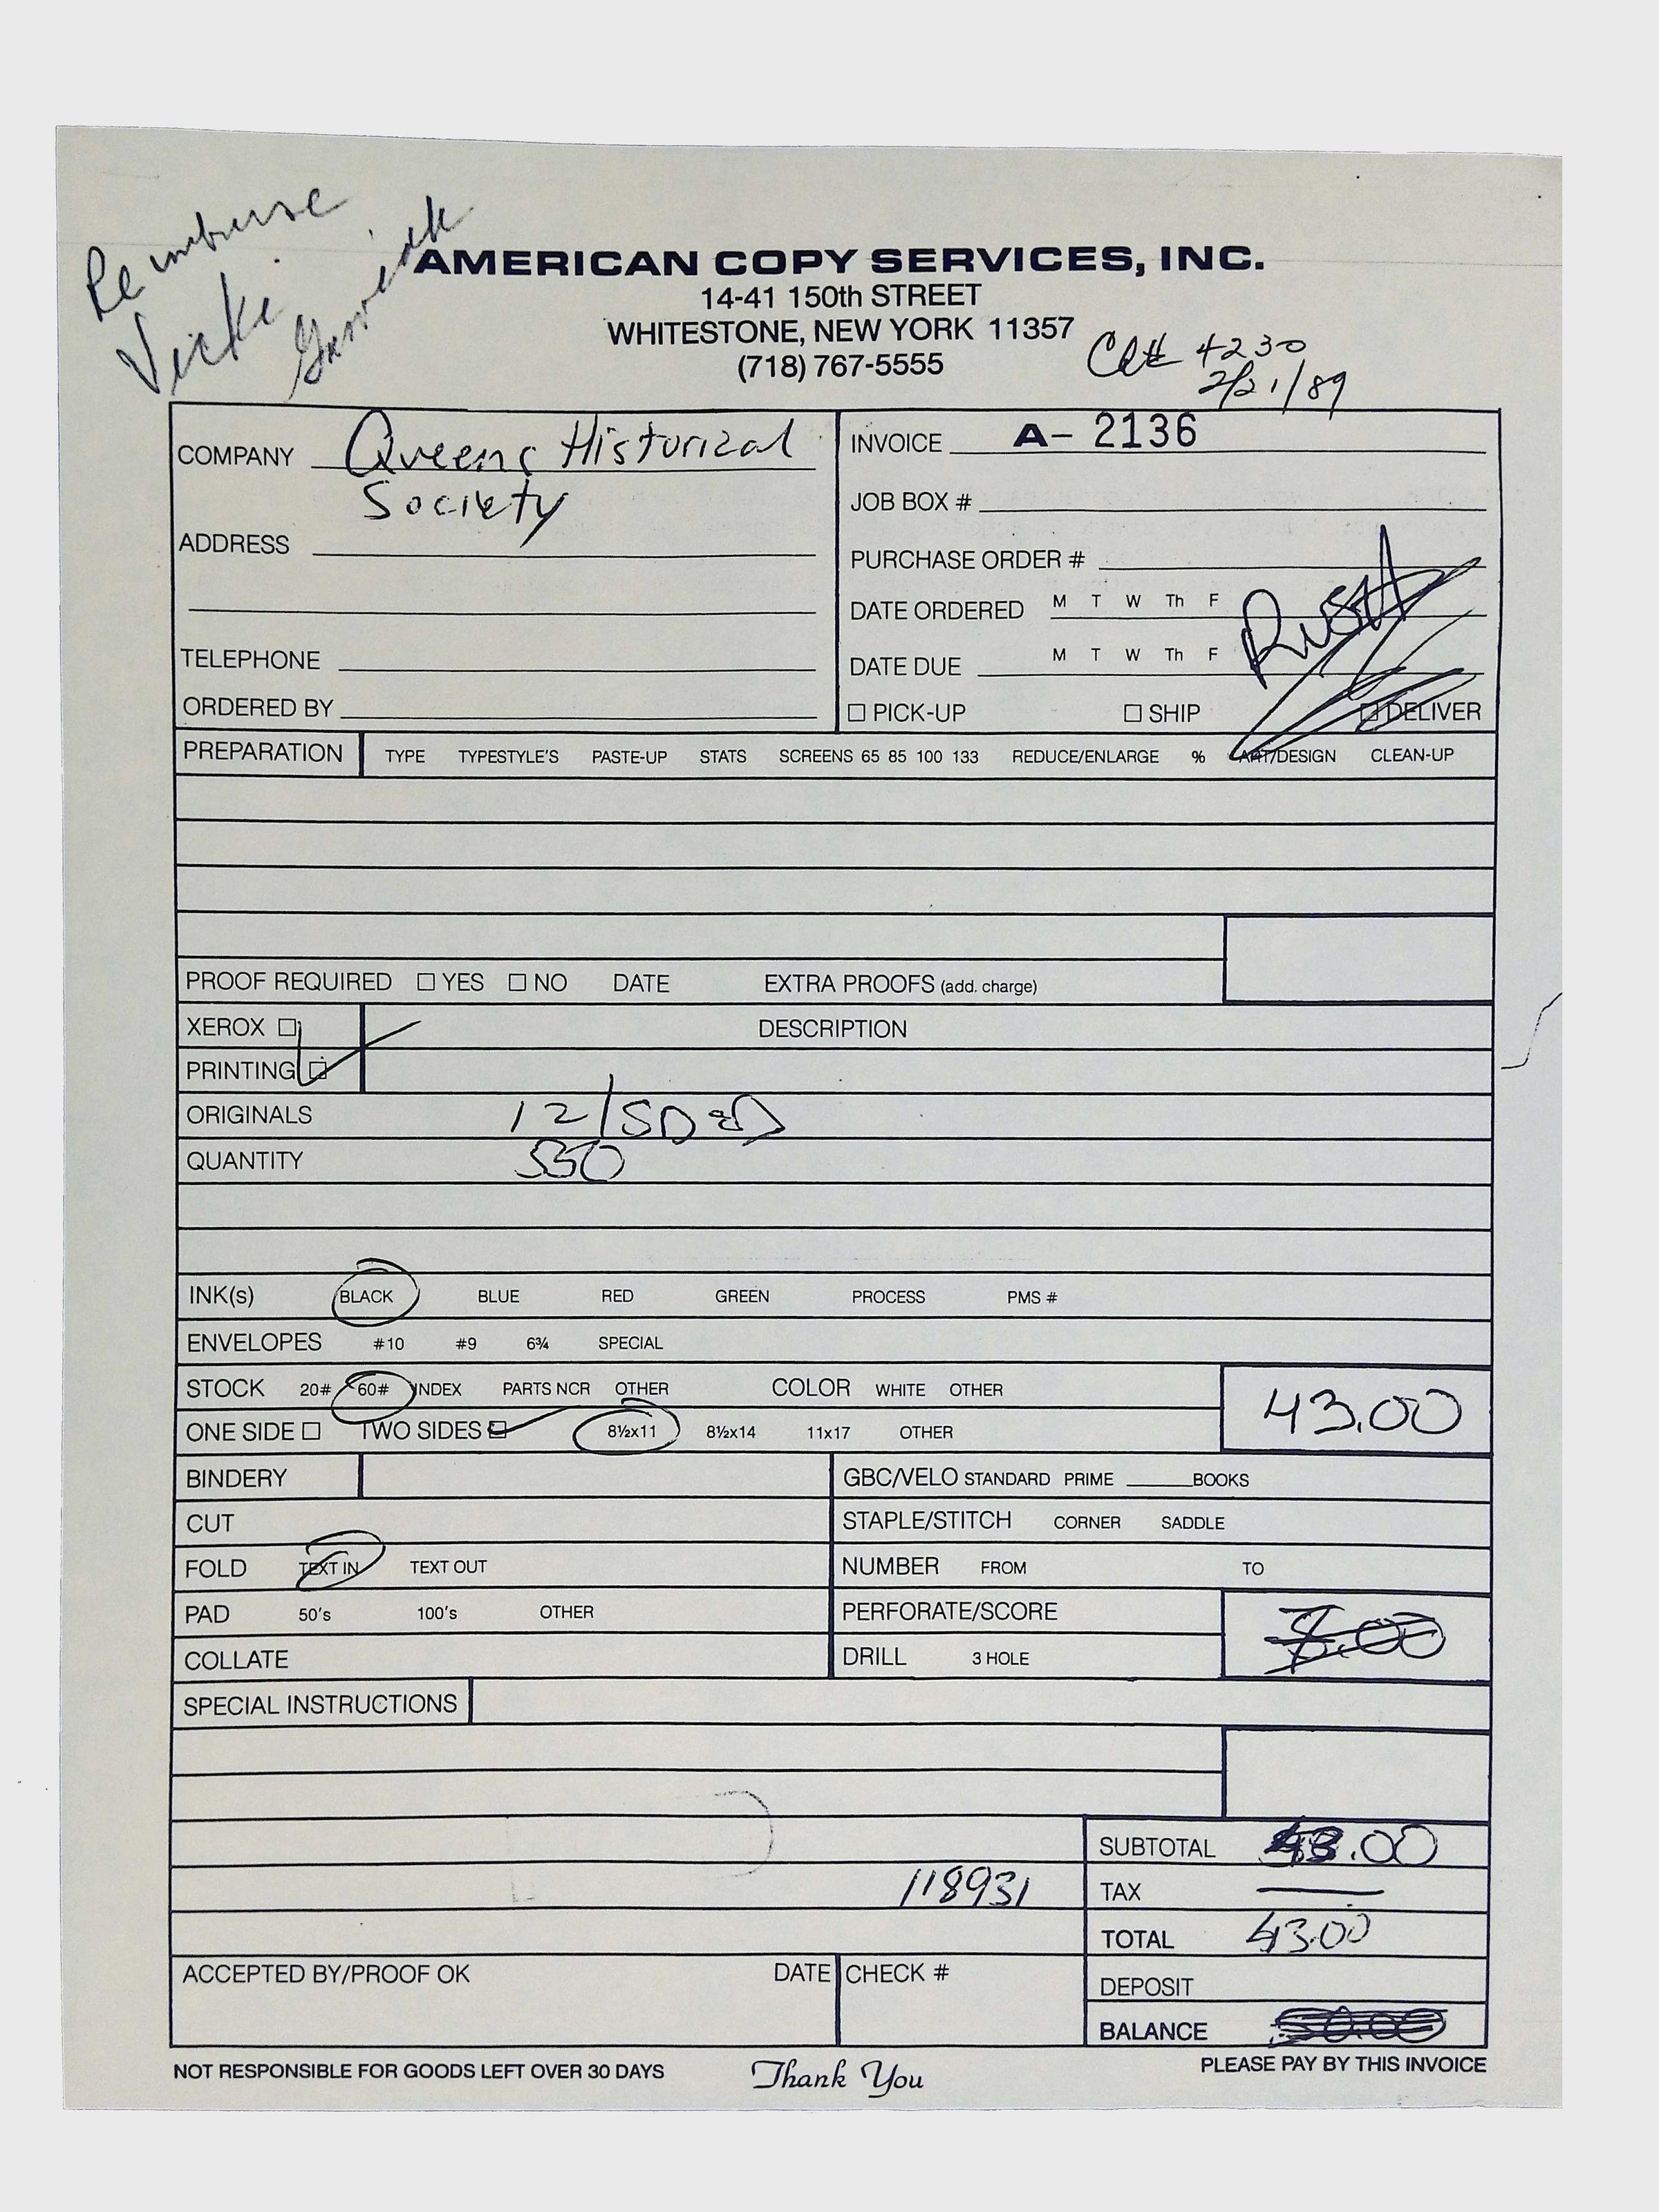 Reimburse
Vicki
AMERICAN COPY SERVICES, INC.
14-41 150th STREET
WHITESTONE, NEW YORK 11357
(718) 767-5555
4230
2/21/89
COMPANY Queens Historical
Society
ADDRESS
TELEPHONE
ORDERED BY
INVOICE A- 2136
JOB BOX #
PURCHASE ORDER #
DATE ORDERED M T W Th F
RUSH
DATE DUE M T W Th F
☐ PICK-UP ☐ SHIP ☐ DELIVER
PREPARATION TYPE TYPESTYLE'S PASTE-UP STATS SCREENS 65 85 100 133 REDUCE/ENLARGE % ART/DESIGN CLEAN-UP
PROOF REQUIRED ☐ YES ☐ NO DATE EXTRA PROOFS (add. charge)
XEROX ☐ DESCRIPTION
PRINTING ☐
ORIGINALS 12/
QUANTITY
INK(s) BLACK BLUE RED GREEN PROCESS PMS #
ENVELOPES #10 #9 6¾ SPECIAL
STOCK 20# 60# INDEX PARTS NCR OTHER COLOR WHITE OTHER
43.00
ONE SIDE ☐ TWO SIDES ☐ 8½x11 8½x14 11x17 OTHER
BINDERY GBC/VELO STANDARD PRIME ____BOOKS
CUT STAPLE/STITCH CORNER SADDLE
FOLD TEXT IN TEXT OUT NUMBER FROM TO
PAD 50's 100's OTHER PERFORATE/SCORE
7.00
COLLATE DRILL 3 HOLE
SPECIAL INSTRUCTIONS
SUBTOTAL 43.00
118931 TAX
TOTAL 43.00
ACCEPTED BY/PROOF OK DATE CHECK # DEPOSIT
BALANCE
NOT RESPONSIBLE FOR GOODS LEFT OVER 30 DAYS Thank You PLEASE PAY BY THIS INVOICE